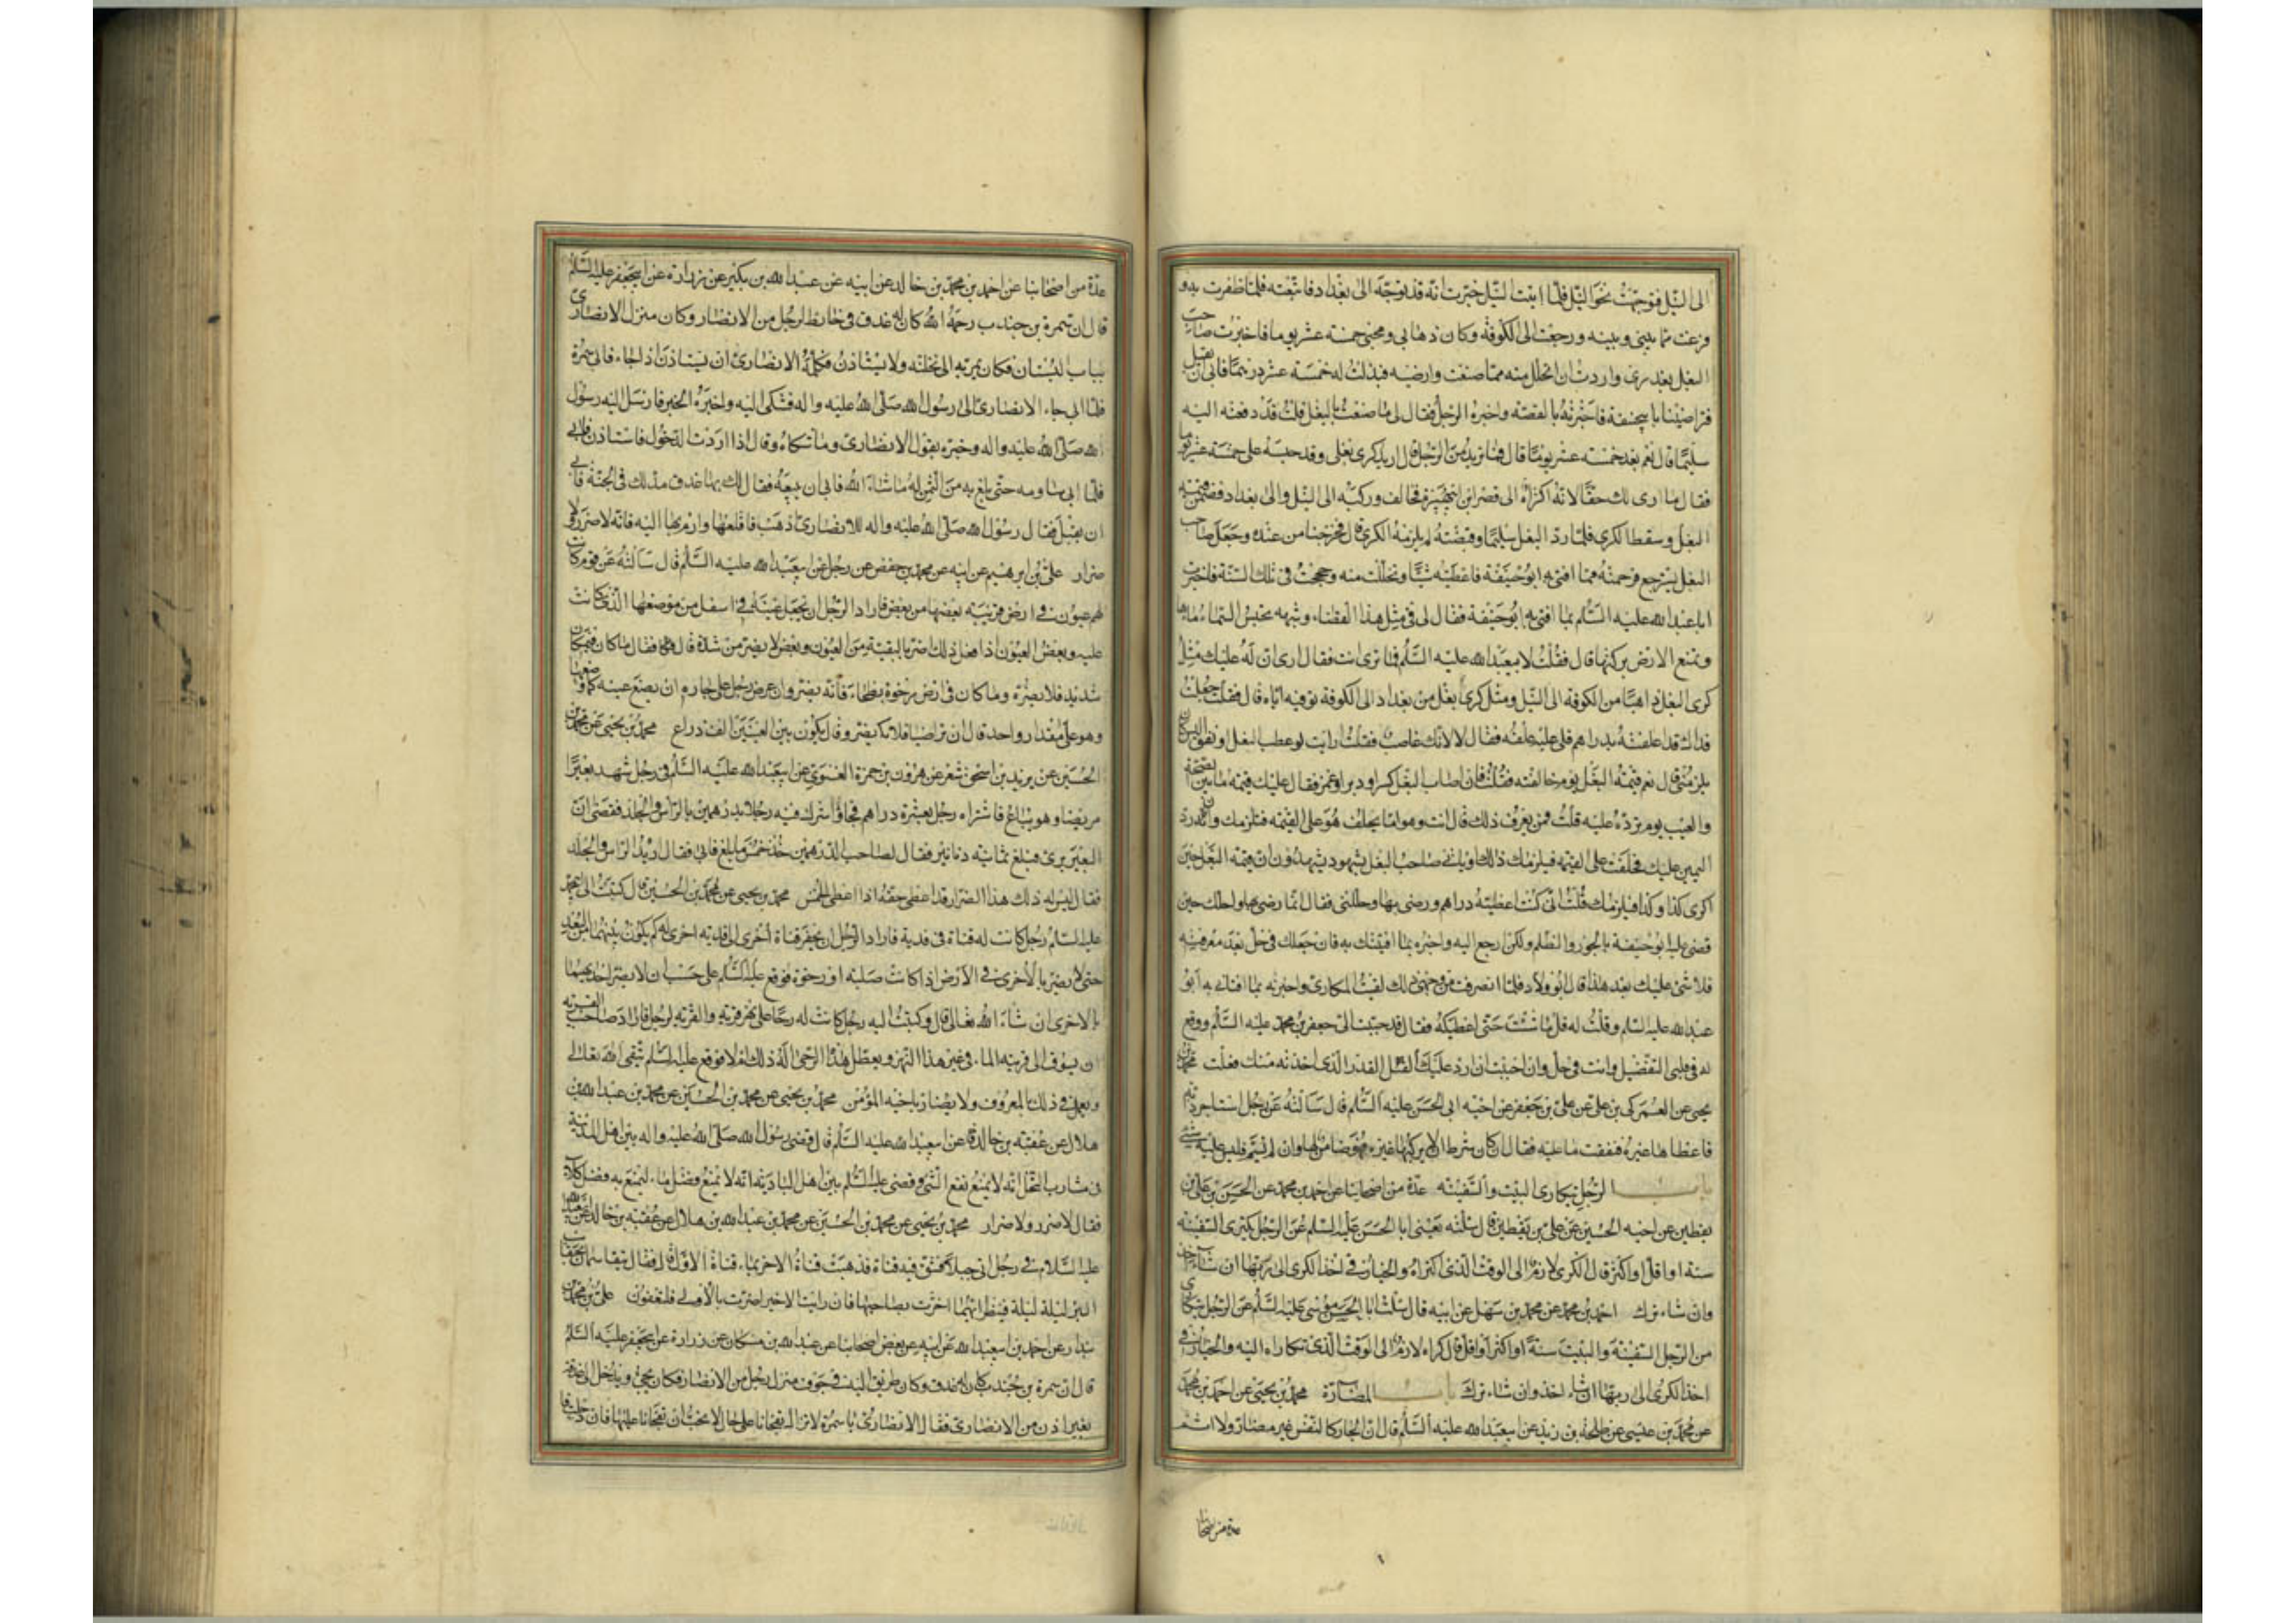 الى النيل فتوجهت نحو النيل فلما اتيت النيل خبرت انه قد توجه الى بغداد فاتبعته فلما ظفرت به و
فرغت مما بيني وبينه ورجعت الى الكوفة وكان ذهابي ومجيئي خمسة عشر يوما فاخبرت صاحب
البغل بعذري واردت ان اتحلل منه مما صنعت وارضيه فبذلت له خمسة عشر درهما فابى ان يقبل
فتراضينا بابي حنيفة فاخبرته بالقصة واخبره الرجل فقال لي ما صنعت بالبغل قلت قد دفعته اليه
سليما قال نعم بعد خمسة عشر يوما قال فما تريد من الرجل قال اريد كرى بغلي وقد حبسه على خمسة عشر يوما
فقال ما ارى لك حقا لانه اكتراه الى قصر ابن هبيرة فخالف وركبه الى النيل والى بغداد فضمن قيمة
البغل وسقط الكرى فلما رد البغل سليما وقبضته لم يلزمه الكرى قال فخرجنا من عنده وجعل صاحب
البغل يسترجع فرحمته مما افتى به ابو حنيفة فاعطيته شيئا وتحللت منه وحججت في تلك السنة فاخبرت
ابا عبد الله عليه السلم بما افتى به ابو حنيفة فقال لي في مثل هذا القضاء وشبهه تحبس السماء ماءها
وتمنع الارض بركتها قال فقلت لابي عبد الله عليه السلم فما ترى انت فقال ارى ان له عليك مثل
كرى البغل ذاهبا من الكوفة الى النيل ومثل كرى بغل من بغداد الى الكوفة توفيه اياه قال فقلت جعلت
فداك قد علفته بدراهم فلي عليه علفه فقال لا لانك غاصب فقلت ارايت لو عطب البغل او نفق اليس كان
يلزمني قال نعم قيمة البغل يوم خالفته فقلت فان اصاب البغل كسر او دبر او غمز فقال عليك قيمة ما بين الصحة
والعيب يوم ترده عليه قلت فمن يعرف ذلك قال انت وهو اما يحلف هو على القيمة فتلزمك وان رد
اليمين عليك فحلفت على القيمة فيلزمك ذلك او ياتي صاحب البغل بشهود يشهدون ان قيمة البغل حين
اكرى كذا وكذا فيلزمك قلت اني كنت اعطيته دراهم ورضي بها وحللني فقال انما رضي بها واحلك حين
قضى عليه ابو حنيفة بالجور والظلم ولكن ارجع اليه واخبره بما افتيتك به فان جعلك في حل بعد معرفته
فلا شئ عليك بعد هذا قال ابو ولاد فلما انصرفت من وجهي ذلك لقيت المكاري واخبرته بما افتاني به ابو
عبد الله عليه السلم وقلت له قل ما شئت حتى اعطيكه فقال قد حببت الى جعفر بن محمد عليه السلم ووقع
له في قلبي التفضيل وانت في حل وان احببت ان ارد عليك القدر الذي اخذته منك فعلت محمد بن
يحيى عن العمركي بن علي عن علي بن جعفر عن اخيه ابي الحسن عليه السلم قال سالته عن رجل استاجر دابة
فاعطاها غيره فنفقت ما عليه فقال ان كان شرط الا يركبها غيره فهو ضامن لها وان لم يسم فليس عليه شئ
باب الرجل يتكارى البيت والسفينة عدة من اصحابنا عن احمد بن محمد عن الحسن بن علي بن
يقطين عن اخيه الحسين عن علي بن يقطين قال سئلته يعني ابا الحسن عليه السلم عن الرجل يكتري السفينة
سنة او اقل او اكثر قال الكرى لازم الى الوقت الذي اكتراه والخيار في اخذ الكرى الى ربها ان شاء اخذ
وان شاء ترك احمد بن محمد عن محمد بن سهل عن ابيه قال سئلت ابا الحسن موسى عليه السلم عن الرجل يتكارى
من الرجل السفينة والبيت سنة او اكثر او اقل قال كراه لازم الى الوقت الذي تكاراه اليه والخيار في
اخذ الكرى الى ربها ان شاء اخذ وان شاء ترك باب المضارة محمد بن يحيى عن احمد بن محمد
عن محمد بن عيسى عن طلحة بن زيد عن ابي عبد الله عليه السلم قال ان الجار كالنفس غير مضار ولا اثم
عدة من اصحابنا
عدة من اصحابنا عن احمد بن محمد بن خالد عن ابيه عن عبد الله بن بكير عن زرارة عن ابي جعفر عليه السلم
قال ان سمرة بن جندب رحمه الله كان له عذق في حائط لرجل من الانصار وكان منزل الانصاري
بباب البستان فكان يمر به الى نخلته ولا يستاذن فكلمه الانصاري ان يستاذن اذا جاء فابى سمرة
فلما ابى جاء الانصاري الى رسول الله صلى الله عليه واله فشكى اليه واخبره الخبر فارسل اليه رسول
الله صلى الله عليه واله وخبره بقول الانصاري وما شكاه وقال اذا اردت الدخول فاستاذن فابى
فلما ابى ساومه حتى بلغ به من الثمن له ما شاء الله فابى ان يبيعه فقال لك بها عذق مذلك في الجنة فابى
ان يقبل فقال رسول الله صلى الله عليه واله للانصاري اذهب فاقلعها وارم بها اليه فانه لا ضرر ولا
ضرار علي بن ابرهيم عن ابيه عن محمد بن حفص عن رجل عن ابي عبد الله عليه السلم قال سالته عن قوم كانت
لهم عيون في ارض قريبة بعضها من بعض فاراد الرجل ان يجعل عينه في اسفل من موضعها الذي كانت
عليه وبعض العيون اذا فعل ذلك اضر بالبقية من العيون وبعض لا يضر من شدة قال فقال ما كان في مكان
شديد فلا يضره وما كان في ارض رخوة بطحاء فانه يضر وان عرض رجل على جاره ان يضع عينه كما وضعها
وهو على مقدار واحد قال ان تراضيا فلا يضر وقال يكون بين العينين الف ذراع محمد بن يحيى عن محمد بن
الحسين عن يزيد بن اسحق شعر عن هرون بن حمزة الغنوي عن ابي عبد الله عليه السلم في رجل شهد بعيرا
مريضا وهو يباع فاشتراه رجل بعشرة دراهم فجاء واشرك فيه رجلا بدرهمين بالراس والجلد فقضى ان
البعير برئ فبلغ ثمانية دنانير فقال لصاحب الدرهمين خذ خمس ما بلغ فابى فقال اريد الراس والجلد
فقال ليس له ذلك هذا الضرار قد اعطى حقه اذا اعطى الخمس محمد بن يحيى عن محمد بن الحسين قال كتبت الى ابي محمد
عليه السلم رجل كانت له قناة في قرية فاراد الرجل ان يحفر قناة اخرى الى قرية اخرى له كم يكون بينهما من البعد
حتى لا يضر بالاخرى في الارض اذا كانت صلبة او رخوة فوقع عليه السلم على حسب ان لا يضر احديهما
بالاخرى ان شاء الله تعالى قال وكتبت اليه رجل كانت له رحا على نهر قرية والقرية لرجل فاراد صاحب القرية
ان يسوق الى قريته الماء في غير هذا النهر ويعطل هذه الرحى اله ذلك ام لا فوقع عليه السلم يتقى الله تعالى
ويعمل في ذلك بالمعروف ولا يضار باخيه المؤمن محمد بن يحيى عن محمد بن الحسين عن محمد بن عبد الله بن
هلال عن عقبة بن خالد عن ابي عبد الله عليه السلم قال قضى رسول الله صلى الله عليه واله بين اهل المدينة
في مشارب النخل انه لا يمنع نفع الشئ وقضى عليه السلم بين اهل البادية انه لا يمنع فضل ماء ليمنع به فضل كلاء
فقال لا ضرر ولا ضرار محمد بن يحيى عن محمد بن الحسين عن محمد بن عبد الله بن هلال عن عقبة بن خالد عن ابي عبد الله
عليه السلام في رجل اتى جبلا فشق فيه قناة فذهبت قناة الاخر بماء قناة الاول قال فقال يتقاسمان بحقائب
البئر ليلة ليلة فينظر ايهما اضرت بصاحبها فان رايت الاخيرة اضرت بالاولى فلتعور علي بن محمد بن
بندار عن احمد بن ابي عبد الله عن ابيه عن بعض اصحابنا عن عبد الله بن مسكان عن زرارة عن ابي جعفر عليه السلم
قال ان سمرة بن جندب كان له عذق وكان طريقه اليه في جوف منزل رجل من الانصار فكان يجئ ويدخل الى عذقه
بغير اذن من الانصاري فقال الانصاري يا سمرة لا تزال تفجانا على حال لا نحب ان تفجانا عليها فاذا دخلت فا